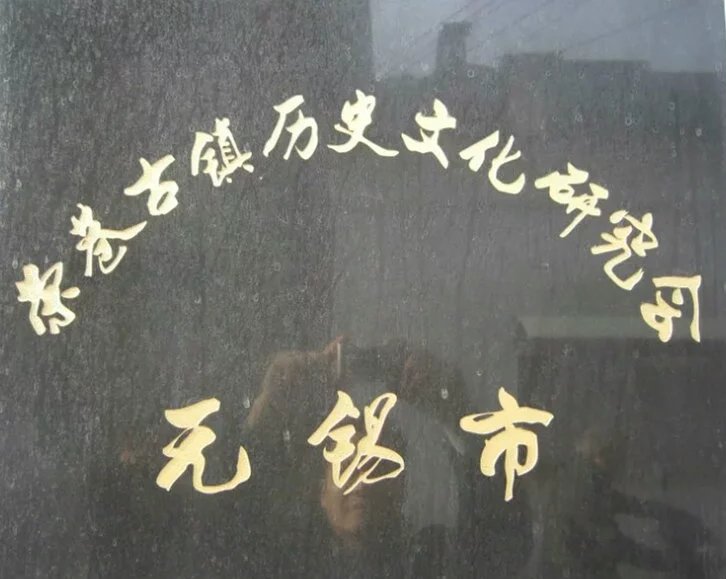 荣巷古镇历史文化研究会
无锡市